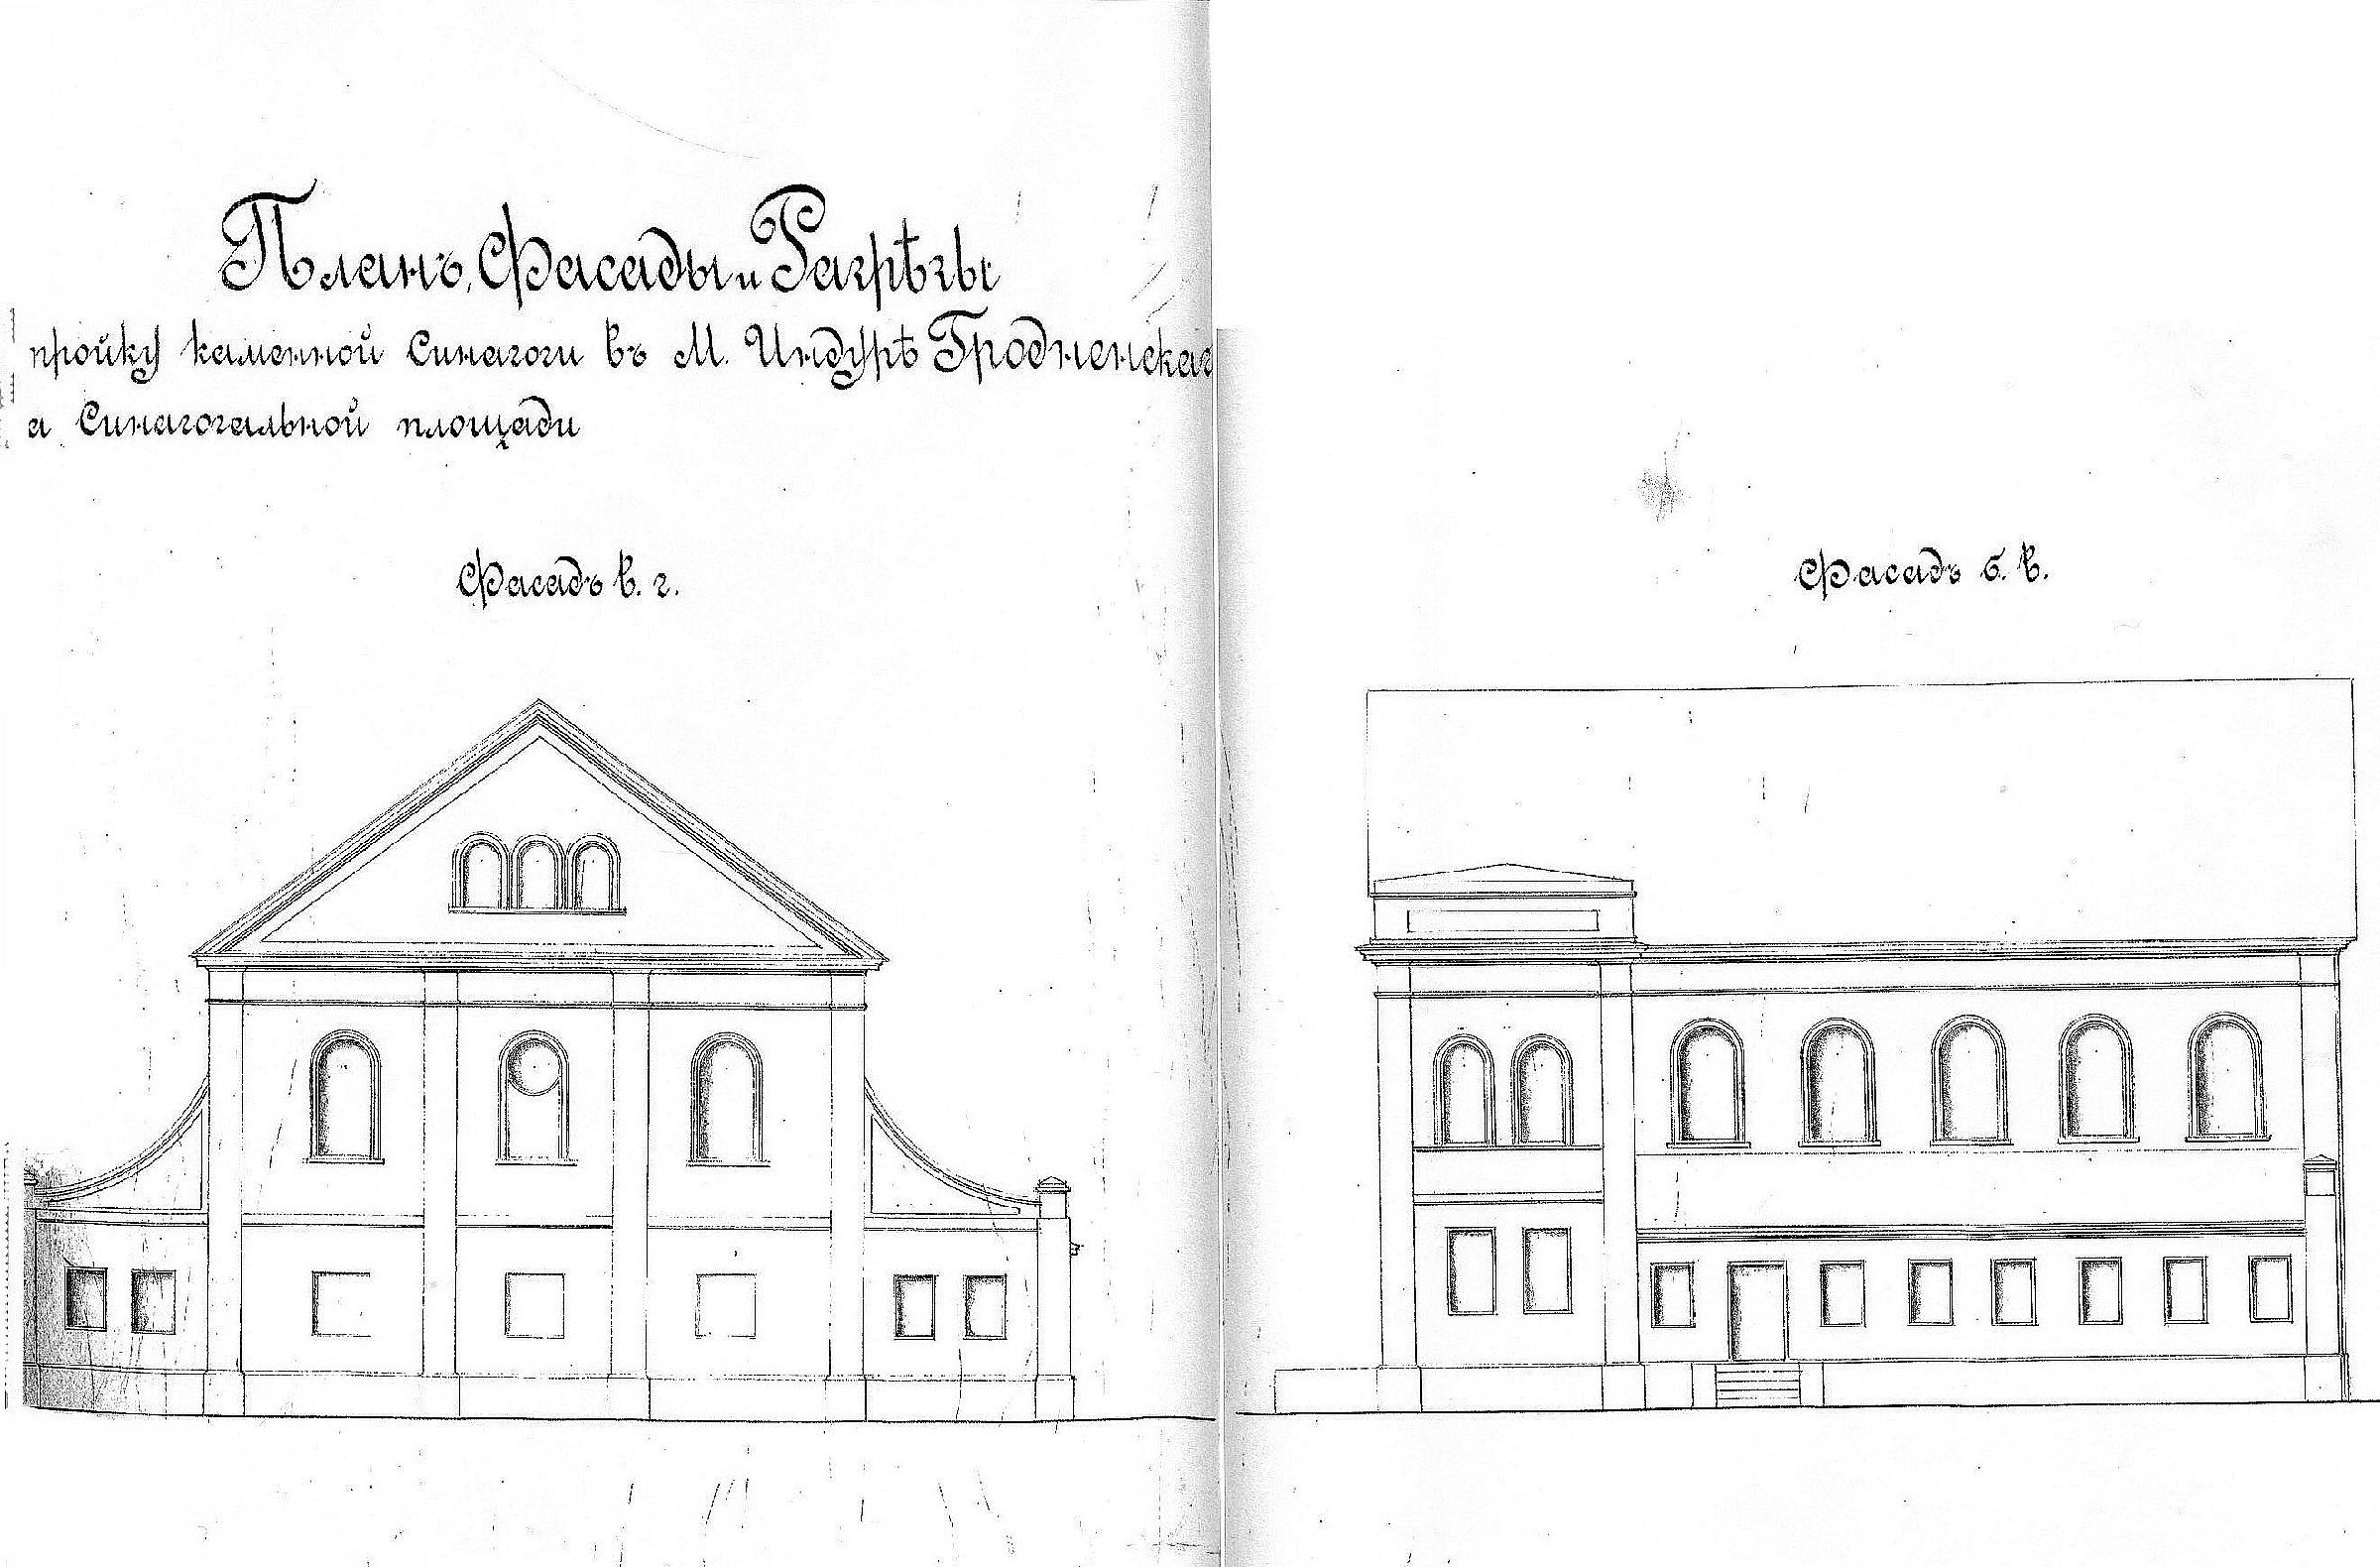 Планъ, Фасады и Разрѣзы
пройку каменной Синагоги въ М. Индурѣ Гродненской
а Синагогальной площади
Фасадъ в. г.
Фасадъ б. в.